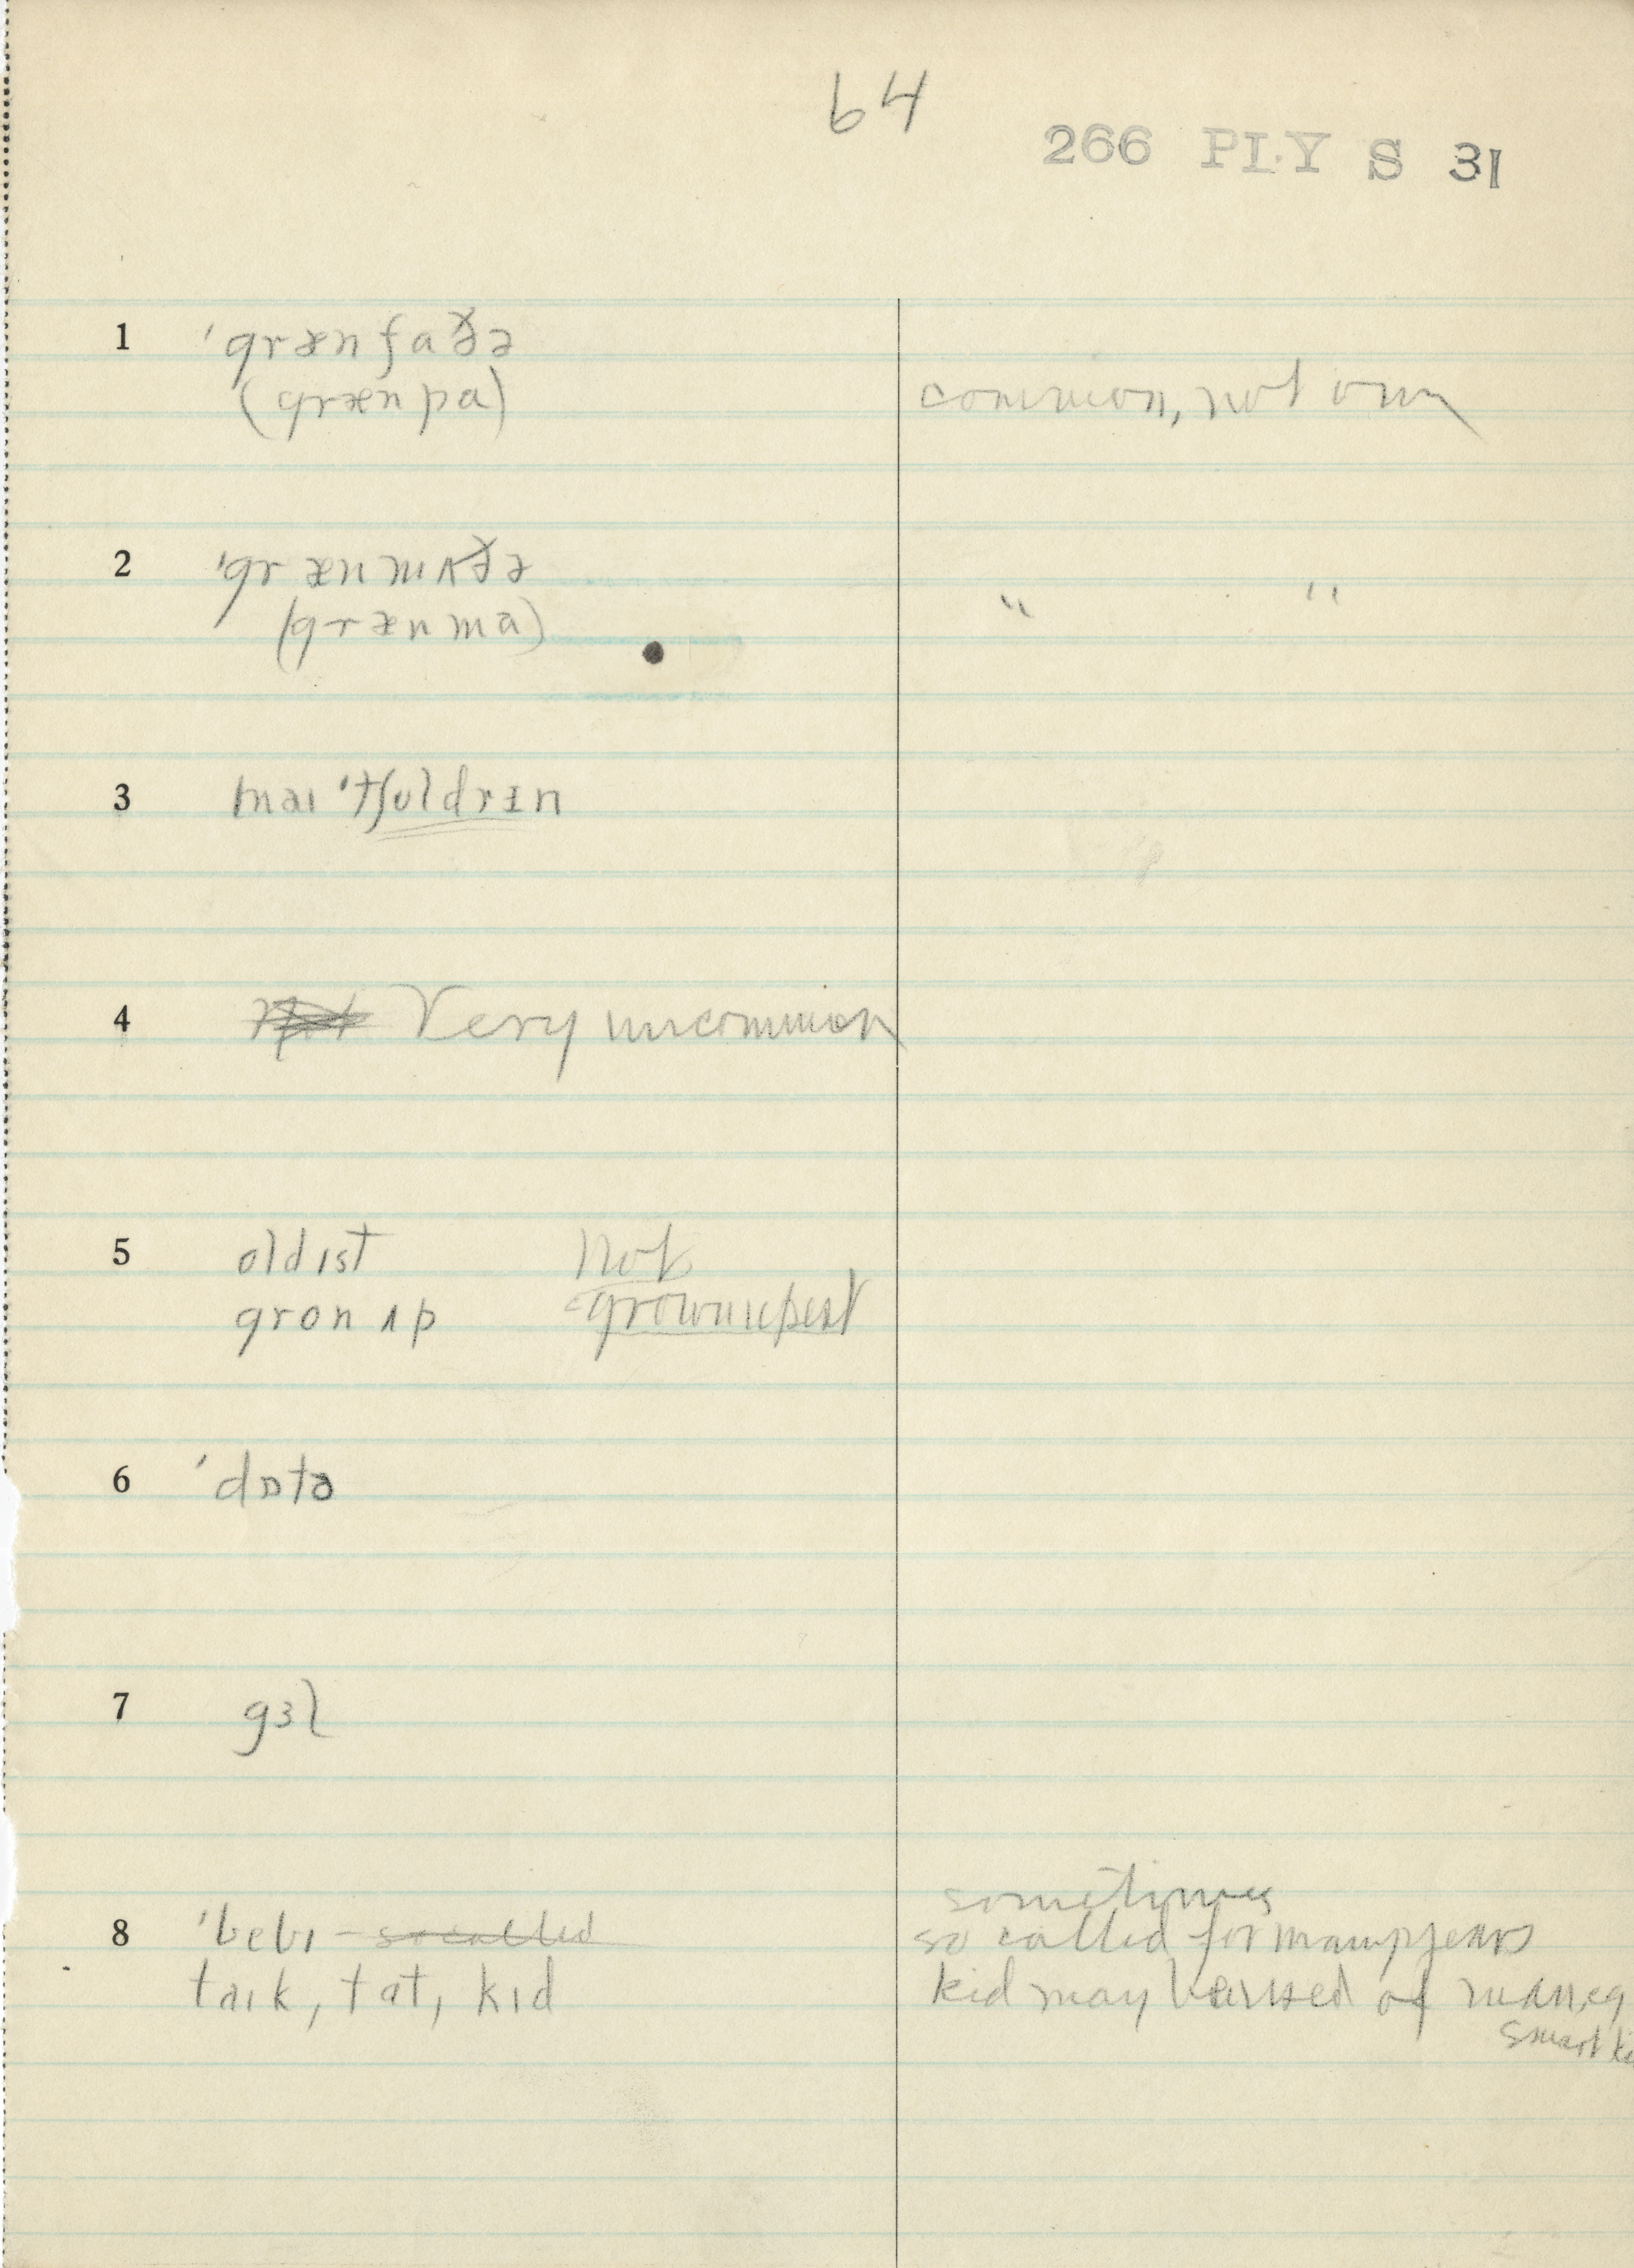 64
266 PLY S 31
1 'grænfaðə
(grænpa) common, not own
2 'grænmʌðə
(grænma) " "
3 mai 'tʃɩldrɪn
4 Very uncommon
5 oldɪst Not
gronʌp grownupest
6 'dɒtə
7 gɜl
8 'bebɪ - so called
sometimes
so called for many years
taɪk, tat, kɪd
kid may be used of man, eg
smart